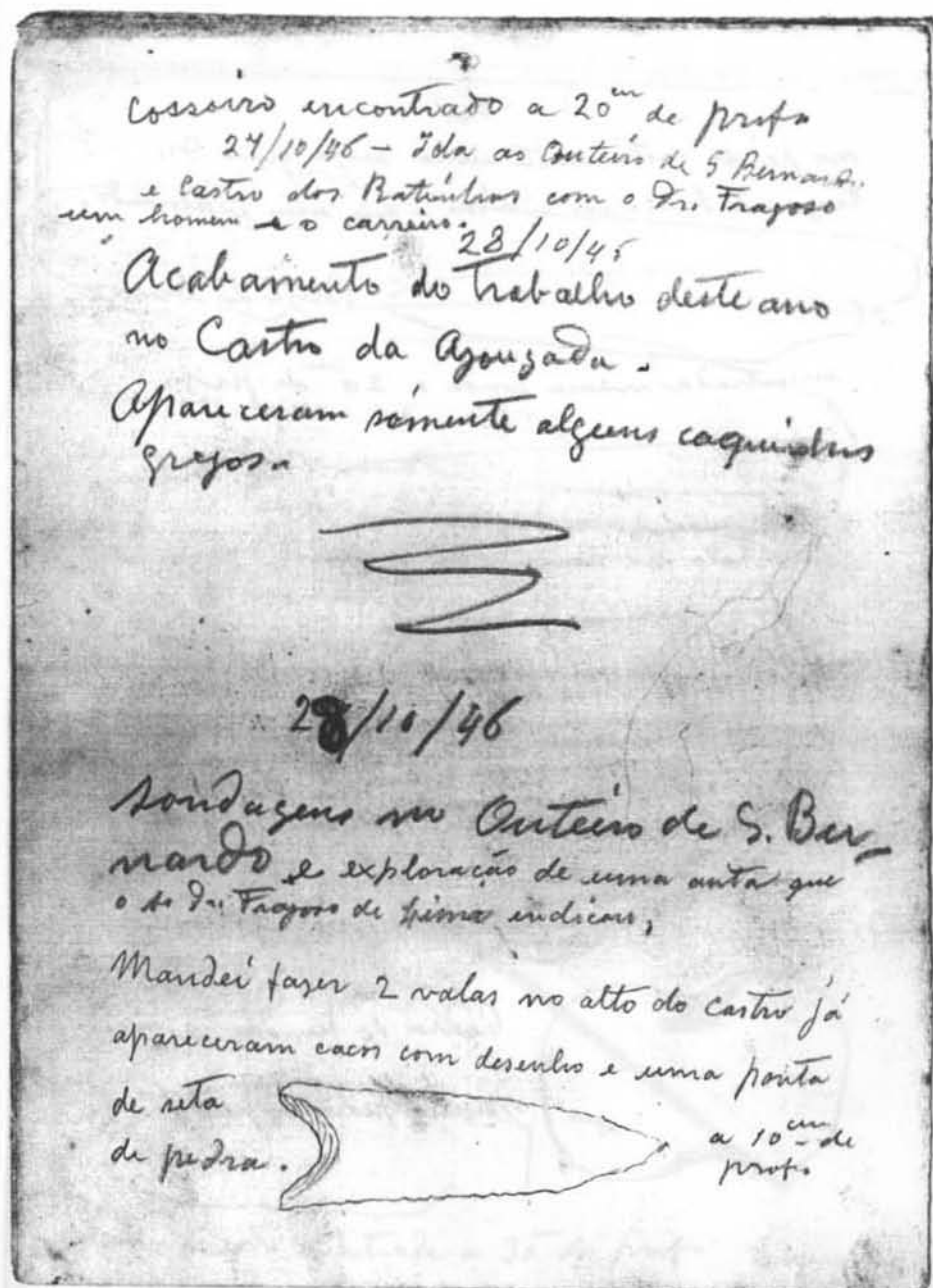 Cossoiro encontrado a 20 cm de profo
27/10/46 – Ida ao Outeiro de S Bernardo
e Castro dos Ratinhos com o Dr. Fragoso
um homem e o carreiro.
28/10/46
Acabamento do trabalho deste ano
no Castro da Azougada.
Apareceram sómente alguns caquinhos
gregos.
28/10/46
Sondagens no Outeiro de S. Ber-
nardo e exploração de uma anta que
o Sr Dr. Fragoso de Lima indicou,
Mandei fazer 2 valas no alto do castro já
apareceram cacos com desenho e uma ponta
de seta
de pedra.
a 10 cm de
profo